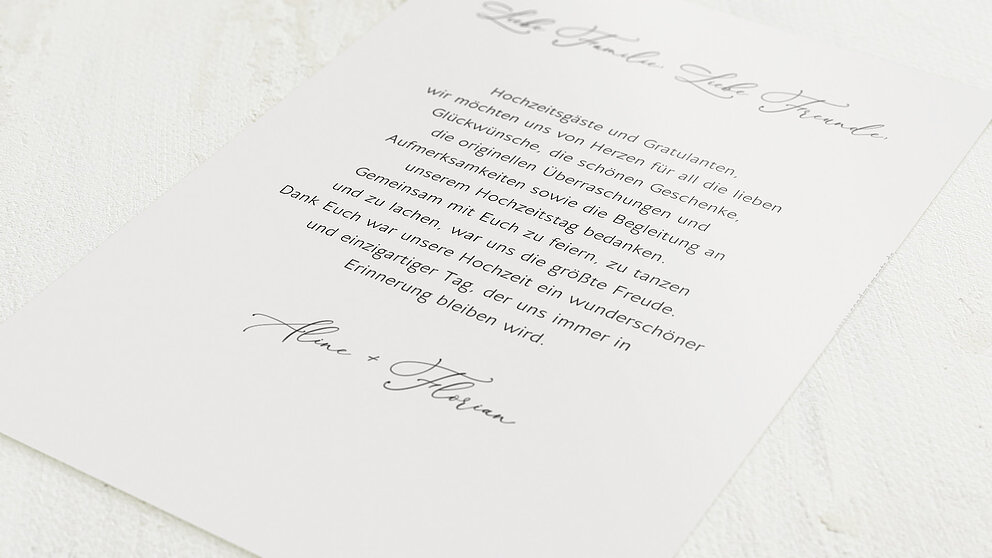 Liebe Familie, Liebe Freunde,
Hochzeitsgäste und Gratulanten,
wir möchten uns von Herzen für all die lieben
Glückwünsche, die schönen Geschenke,
die originellen Überraschungen und
Aufmerksamkeiten sowie die Begleitung an
unserem Hochzeitstag bedanken.
Gemeinsam mit Euch zu feiern, zu tanzen
und zu lachen, war uns die größte Freude.
Dank Euch war unsere Hochzeit ein wunderschöner
und einzigartiger Tag, der uns immer in
Erinnerung bleiben wird.
Aline + Florian